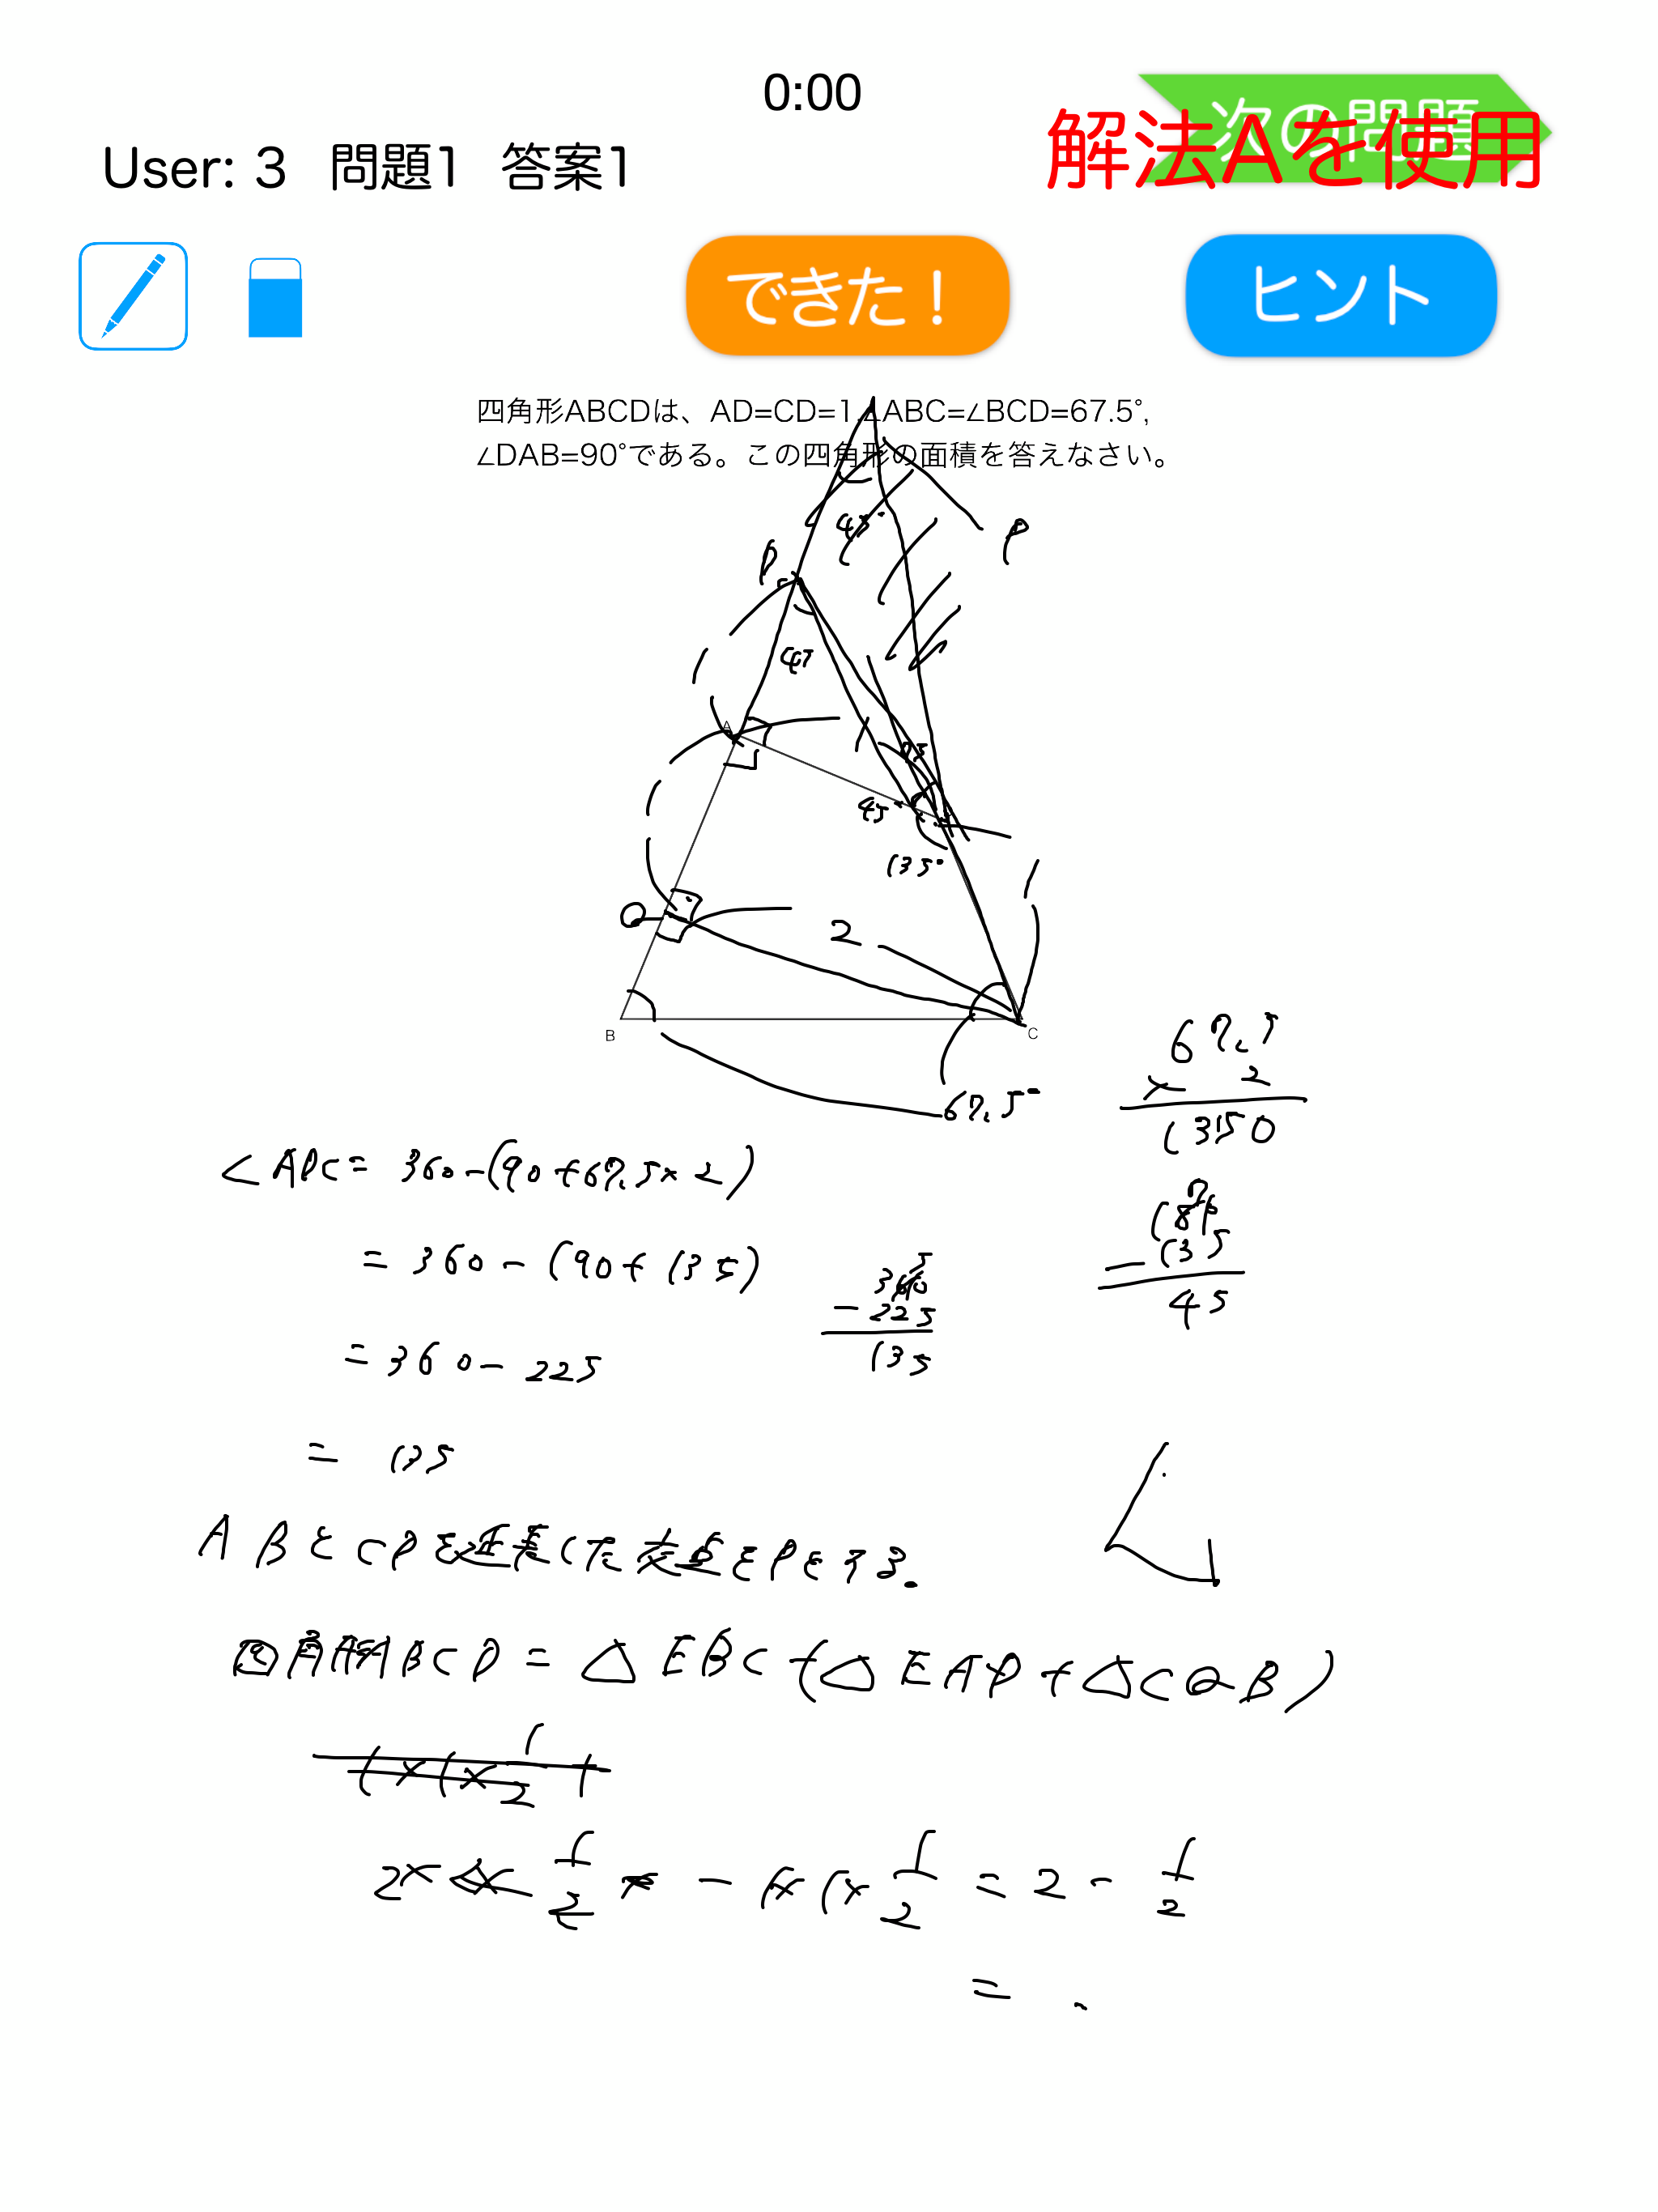 0:00
次の問題
解法Aを使用
User: 3 問題1 答案1
できた！
ヒント
四角形ABCDは、AD=CD=1,∠ABC=∠BCD=67.5°,
∠DAB=90°である。この四角形の面積を答えなさい。
45°
P
P
45
A
45
45°
135°
Q
2
B
C
67.5°
67.5
× 2
1350
∠ADC= 360-(90+67.5×2)
= 360-(90+135)
= 360-225
= 135
360
-225
135
180
-135
45
ABとCDを延長した交点をPとする.
四角形ABCD = △EBC-(△EAD+△CQB)
1×1×1/2+
2× 1/2 - 1×1×1/2 = 2 - 1/2
=